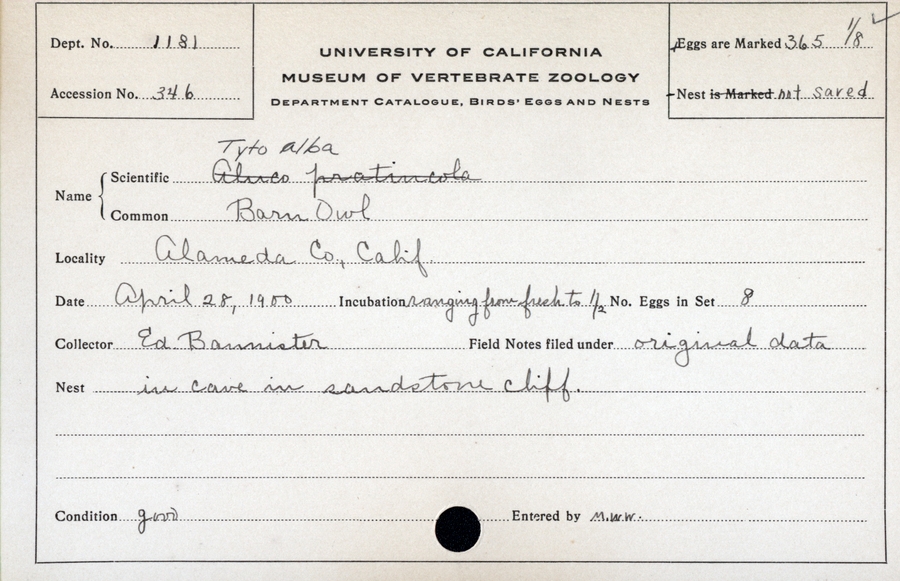 Dept. No. 1181
Accession No. 346
UNIVERSITY OF CALIFORNIA
MUSEUM OF VERTEBRATE ZOOLOGY
DEPARTMENT CATALOGUE, BIRDS' EGGS AND NESTS
Eggs are Marked 365 1/8
Nest is Marked not saved
Tyto alba
Name
Scientific Aluco pratincola
Common Barn Owl
Locality Alameda Co., Calif.
Date April 28, 1900 Incubation ranging from fresh to 1/2 No. Eggs in Set 8
Collector Ed. Bannister Field Notes filed under original data
Nest in cave in sandstone cliff.
Condition good Entered by M.W.W.